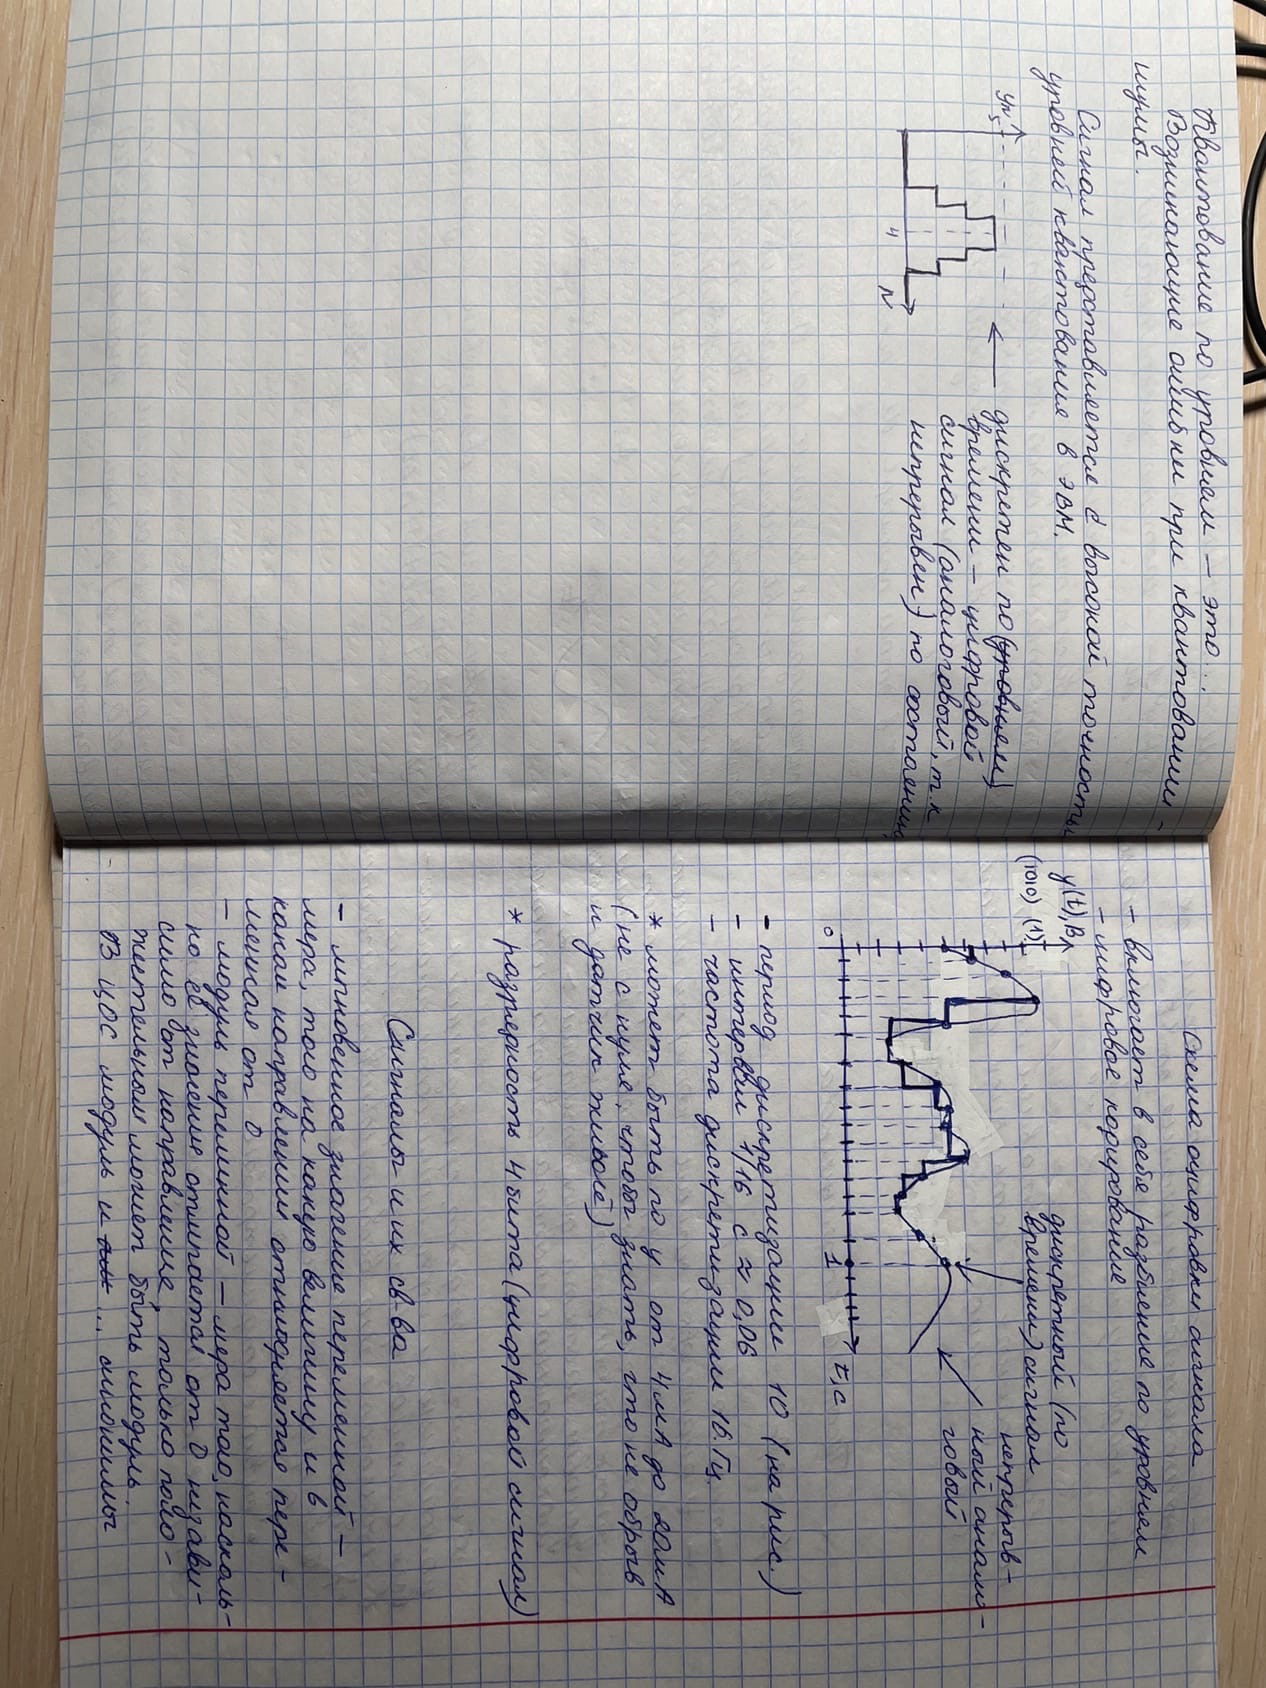 Квантование по уровням – это...
Возникающие ошибки при квантовании –
шумы.
Сигнал представляется с высокой точностью
уровней квантования в ЭВМ.
yn
5
4
n
дискретен по (уровням)
времени – цифровой
сигнал (аналоговый, т.к
непрерывен) по состоянию
Схема оцифровки сигнала
– включает в себя разбиение по уровням
– цифровое кодирование
y(t),В
(1010) (1)
дискретный (по
времени) сигнал
непрерыв-
ный анало-
говый
0
1
t,c
– период дискретизации 10 (на рис.)
– интервал 1/16 с ≈ 0,06
– частота дискретизации 16 Гц.
* может быть по y от 4мА до 20мА
(не с нуля, чтобы знать, что не обрыв
и датчик живой)
* разрядность 4 бита (цифровой сигнал)
Сигналы и их св-ва
– мгновенное значение переменной –
мера, того на какую величину и в
каком направлении отклоняется пере-
менная от 0
– модуль переменной – мера того, насколь-
ко её значение отличается от 0 незави-
симо от направление, только поло-
жительным может быть модуль.
В ЦОС модуль и ... синонимы